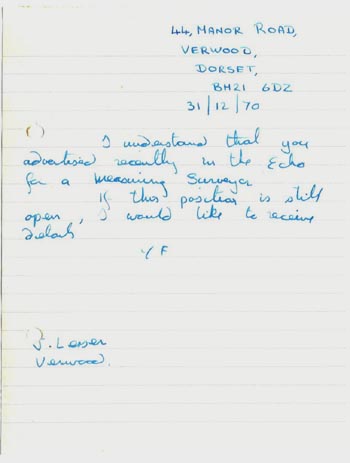 44, MANOR ROAD,
VERWOOD,
DORSET,
BH21 6DZ
31/12/70
I understand that you
advertised recently in the Echo
for a Measuring Surveyor
If this position is still
open, I would like to receive
details
Y F
J. Lesser
Verwood.